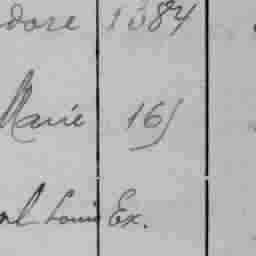 dore 1384
Marie 165
Louis Ex.